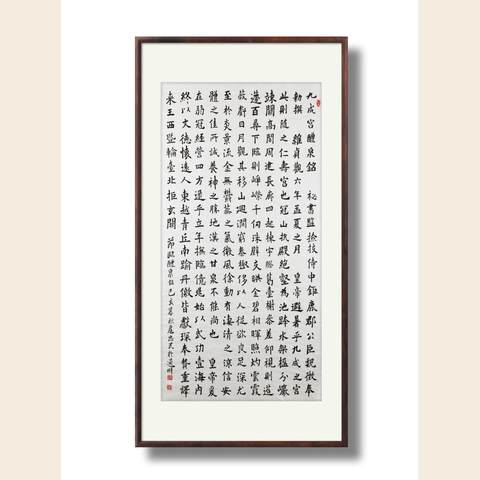 九成宮醴泉銘 秘書監檢校侍中鉅鹿郡公臣魏徵奉
勅撰 維貞觀六年孟夏之月 皇帝避暑乎九成之宮
此則隨之仁壽宮也冠山抗殿絕壑為池跨水架楹分巖
竦闕高閣周建長廊四起棟宇膠葛臺榭參差仰視則迢
遰百尋下臨則崢嶸千仞珠璧交映金碧相暉照灼雲霞
蔽虧日月觀其移山迴澗窮泰極侈以人從欲良足深尤
至於炎景流金無鬱蒸之氣微風徐動有淒清之涼信安
體之佳所誠養神之勝地漢之甘泉不能尚也 皇帝爰
在弱冠經營四方逮乎立年撫臨億兆始以武功壹海內
終以文德懷遠人東越青丘南踰丹儌皆獻琛奉贄重譯
來王西暨輪臺北拒玄闕 節臨醴泉銘己亥